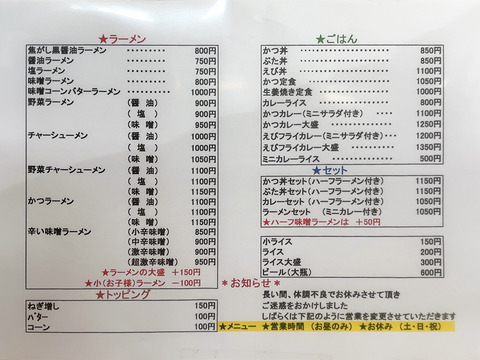 ★ラーメン
焦がし黒醤油ラーメン ・・・・・・・・・ 800円
醤油ラーメン ・・・・・・・・・ 750円
塩ラーメン ・・・・・・・・・ 750円
味噌ラーメン ・・・・・・・・・ 800円
味噌コーンバターラーメン ・・・・・・・・・ 1000円
野菜ラーメン （醤 油） 900円
（ 塩 ） 900円
（味 噌） 950円
チャーシューメン （醤 油） 1000円
（ 塩 ） 1000円
（味 噌） 1050円
野菜チャーシューメン （醤 油） 1100円
（ 塩 ） 1100円
（味 噌） 1150円
かつラーメン （醤 油） 1100円
（ 塩 ） 1100円
（味 噌） 1150円
辛い味噌ラーメン （小辛味噌） 850円
（中辛味噌） 900円
（激辛味噌） 900円
（超激辛味噌） 950円
★ラーメンの大盛 ＋150円
★小（お子様）ラーメン －100円
★トッピング
ねぎ増し 150円
バター 100円
コーン 100円
★ごはん
かつ丼 ・・・・・・・・・ 850円
ぶた丼 ・・・・・・・・・ 850円
えび丼 ・・・・・・・・・ 1100円
かつ定食 ・・・・・・・・・ 1050円
生姜焼き定食 ・・・・・・・・・ 1000円
カレーライス ・・・・・・・・・ 800円
かつカレー（ミニサラダ付き） ・・・ 1100円
かつカレー大盛 ・・・・・・・・・ 1250円
えびフライカレー（ミニサラダ付き） ・・ 1200円
えびフライカレー大盛 ・・・・・・ 1350円
ミニカレーライス ・・・・・・・・・ 500円
★セット
かつ丼セット（ハーフラーメン付き） 1150円
ぶた丼セット（ハーフラーメン付き） 1150円
カレーセット（ハーフラーメン付き） 1050円
ラーメンセット （ミニカレー付き） 1050円
★ハーフ味噌ラーメンは ＋50円
小ライス 150円
ライス 200円
ライス大盛 300円
ビール（大瓶） 600円
＊お知らせ＊
長い間、体調不良でお休みさせて頂き
ご迷惑をおかけしました
しばらくは下記のように営業を変更させていただきます
★メニュー ★営業時間 （お昼のみ） ★お休み （土・日・祝）